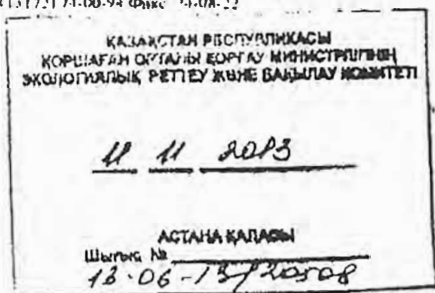 ҚАЗАҚСТАН РЕСПУБЛИКАСЫ
ҚОРШАҒАН ОРТАНЫ ҚОРҒАУ МИНИСТРЛІГІНІҢ
ЭКОЛОГИЯЛЫҚ РЕТТЕУ ЖӘНЕ БАҚЫЛАУ КОМИТЕТІ
11 11 2013
АСТАНА ҚАЛАСЫ
Шығыс №
13-06-13/20508